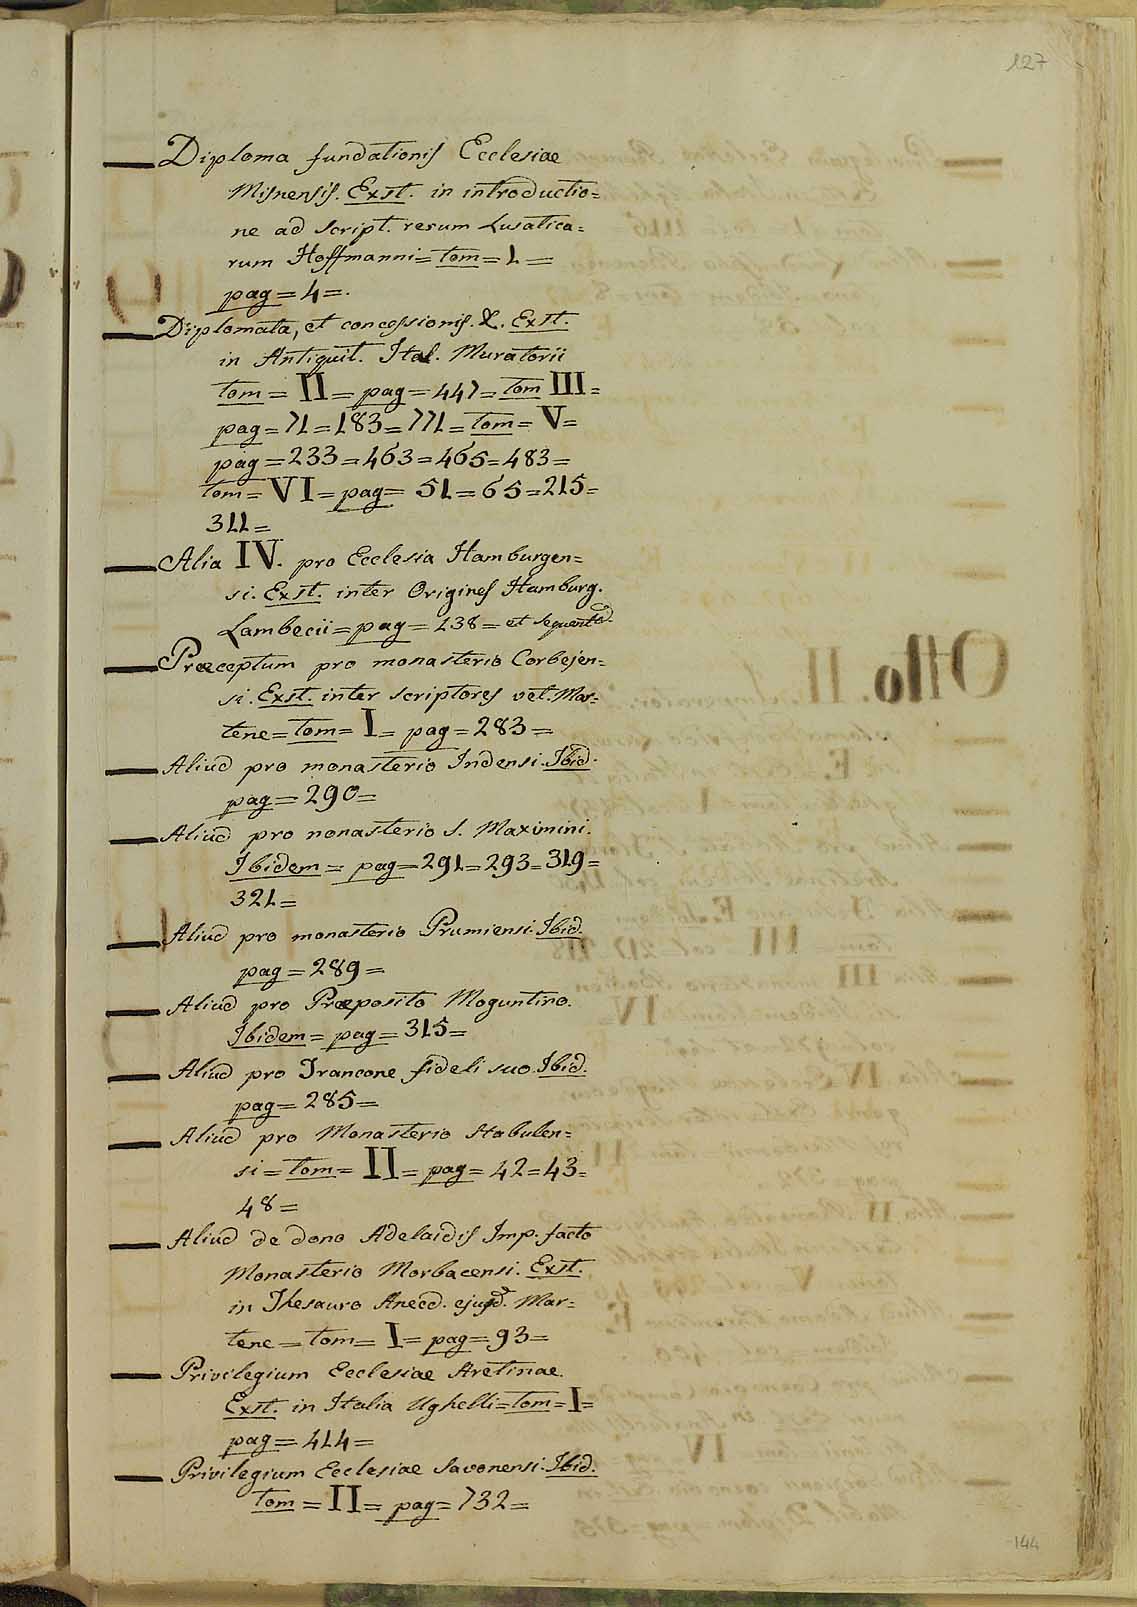 127
— Diploma fundationis Ecclesiae
Misnensis. Exst. in introductio=
ne ad script. rerum Lusatica=
rum Hoffmanni = tom = 1 =
pag = 4 =.
— Diplomata, et concessionis. &. Exst.
in Antiquit. Ital. Muratorii
tom = II = pag = 447 = tom III =
pag = 71 = 183 = 771 = tom = V =
pag = 233 = 463 = 465 = 483 =
tom = VI = pag = 51 = 65 = 215 =
311 =
— Alia IV. pro Ecclesia Hamburgen=
si. Exst. inter Origines Hamburg.
Lambecii = pag = 138 = et sequent
— Præceptum pro monasterio Corbejen=
si. Exst. inter scriptores vet. Mar=
tene = tom = I = pag = 283 =
— Aliud pro monasterio Indensi. Ibid.
pag = 290 =
— Aliud pro nonasterio S. Maximini.
Ibidem = pag = 291 = 293 = 319 =
321 =
— Aliud pro monasterio Prumiensi. Ibid.
pag = 289 =
— Aliud pro Præposito Moguntino.
Ibidem = pag = 315 =
— Aliud pro Trancone fideli suo. Ibid.
pag = 285 =
— Aliud pro Monasterio Stabulen=
si = tom = II = pag = 42 = 43 =
48 =
— Aliud de dono Adelaidis Imp. facto
Monasterio Morbacensi. Exst.
in Thesauro Anecd. ejusd. Mar=
tene = tom = I = pag = 93 =
— Privilegium Ecclesiae Aretinae.
Exst. in Italia Ughelli = tom = I =
pag = 414 =
— Privilegium Ecclesiae Savonensi. Ibid.
tom = II = pag = 732 =
144